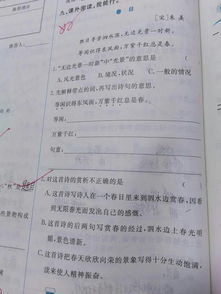 九、课外阅读，我能行。
春日
[宋]朱熹
胜日寻芳泗水滨，无边光景一时新。
等闲识得东风面，万紫千红总是春。
1."无边光景一时新"中"光景"的意思是
A.风光景色 B.境况、状况 C.一般的情况
2.先解释带点的词，再写出诗句的意思。
等闲识得东风面，万紫千红总是春。
等闲：
万紫千红：
句意：
3.对这首诗的赏析不正确的是
A.这首诗写诗人在一个春日里来到泗水边赏春，因看
到无限春光而发论自己的感慨。
B.这首诗的后两句写赏春的经过，泗水边上春光明
媚，景色清新。
C.这首诗把春天欣欣向荣的景象写得十分生动饱满，
读来使人精神振奋。